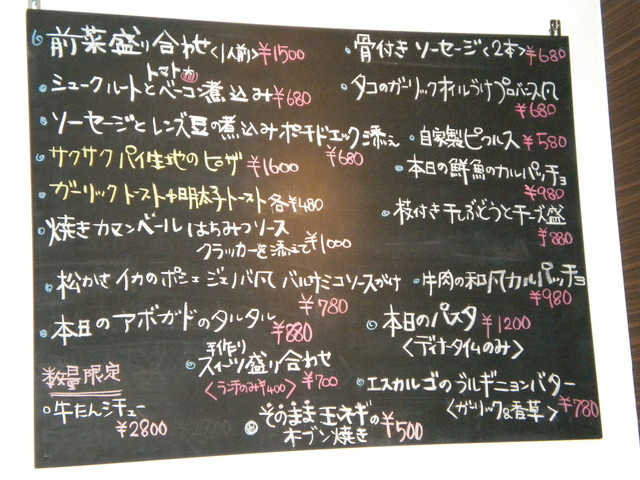 前菜盛り合わせ<1人前>¥1500
トマト
シュークルートとベーコン煮込み¥680
ソーセージとレンズ豆の煮込みポーチドエッグ添え
¥680
サクサクパイ生地のピザ ¥1600
ガーリックトースト or 明太子トースト 各¥480
焼きカマンベール はちみつソース
クラッカーを添えて ¥1000
松かさイカのポシェ ジェノバ風 バルサミコソースがけ
¥780
本日のアボガドのタルタル
¥880
数量限定
牛たんシチュー
¥2800
手作り
スイーツ盛り合わせ
<ランチのみ¥400> ¥700
そのまま玉ネギの
オーブン焼き ¥500
骨付きソーセージ<2本> ¥680
タコのガーリックオイルづけプロバンス風
¥680
自家製ピクルス ¥580
本日の鮮魚のカルパッチョ
¥980
枝付き干しぶどうとチーズ盛
¥880
牛肉の和風カルパッチョ
¥980
本日のパスタ ¥1200
<ディナータイムのみ>
エスカルゴのブルギニョンバター
<ガーリック&香草> ¥780